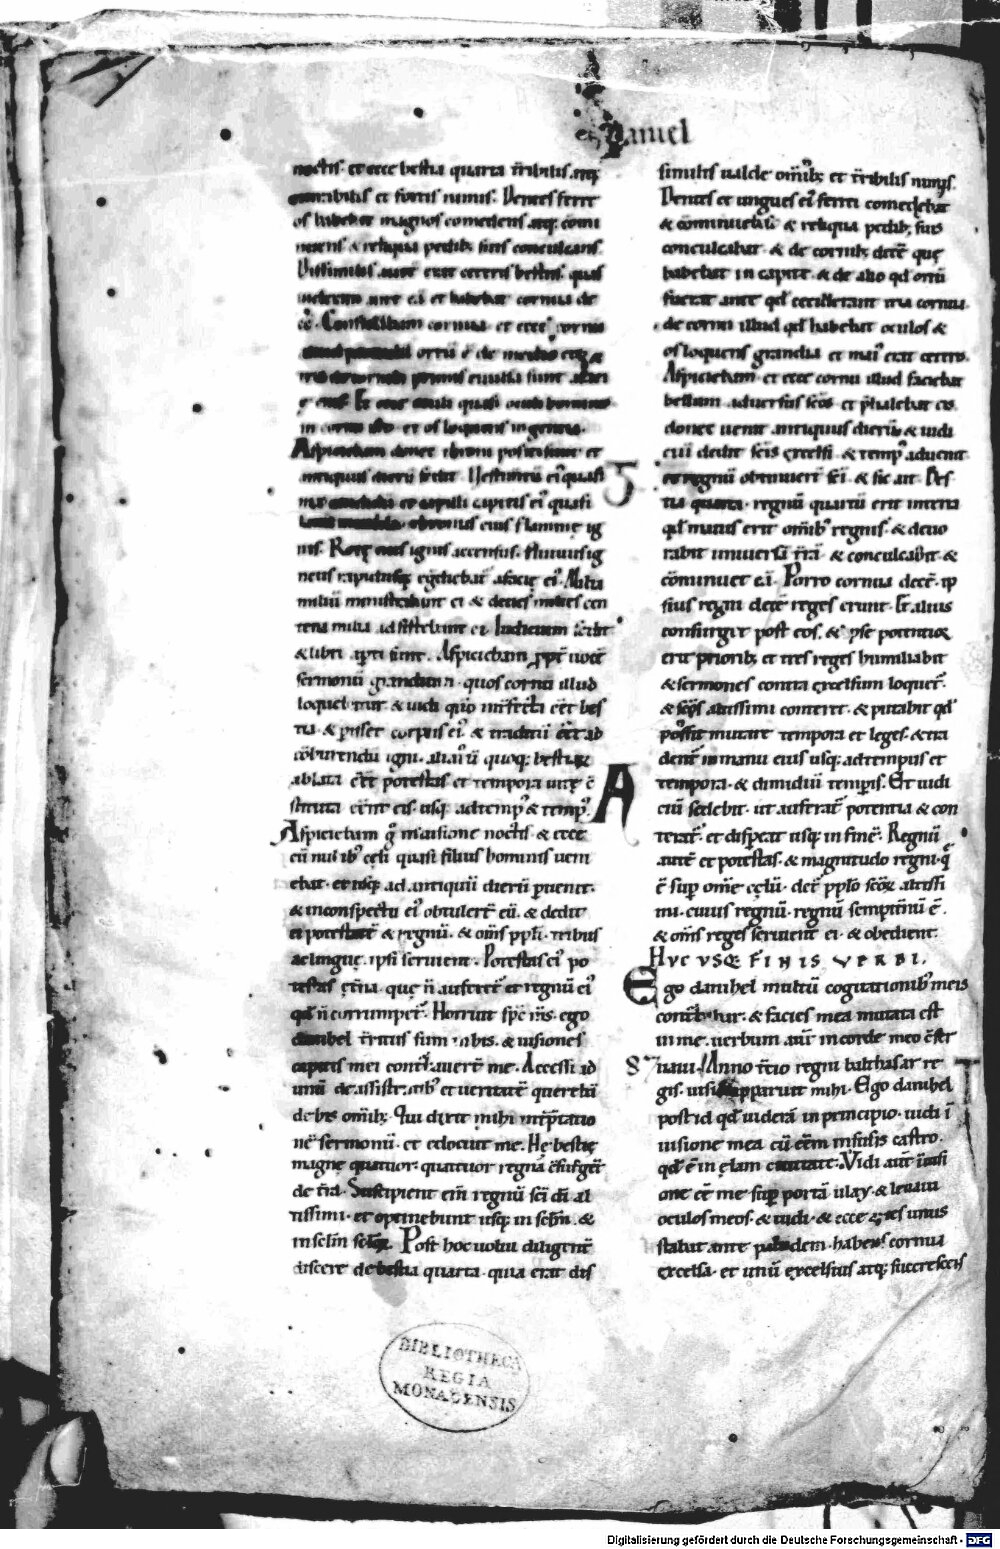 et Daniel
noctis· et ecce bestia quarta t̄ribilis atq;
mirabilis et fortis nimis. Dentes ferre
os habebat magnos comedens atq; cōmi
nuens & reliqua pedib; suis conculcans.
Dissimilis aut̄ erat ceteris bestiis quas
uideram ante eā et habebat cornua de
cē· Considerabam cornua et ecce cornu
ortū ē de medio
tria de cornib; primis euulsa sunt
Et ecce oculi quasi oculi hominis
in cornu isto et os loquens ingentia·
Aspiciebam donec throni positi sunt et
antiquus dierū sedit Vestimentū ei᷒ quasi
nix et capilli capitis ei᷒ quasi
lana munda· thronus eius flammę ig
nis. Rotę eius ignis accensus. fluuiusig
neus rapidusq; egrediebat᷑ a facie ei᷒. Milia
miliū ministrabant ei & decies milies cen
tena milia adsistebant ei Iudicium sedit
& libri apti sunt. Aspiciebam ppt̄ uocē
sermonū grandium quos cornu illud
loquebatur & uidi qm̄ int̄fecta eēt bes
tia & pisset corpus ei᷒ & traditū eēt ad
cōburendū igni· aliarū quoq; bestiarꝝ
ablata eēt potestas et tempora uitę c̄
stituta eēnt eis usq; ad temp᷒ & temp᷒
Aspiciebam g̊ in uisione noctis & ecce
cū nubib᷒ cęli quasi filius hominis ueni
ebat· et usq; ad antiquū dierū puenit·
& in conspectu ei᷒ obtulert̄ eū. & dedit
ei potestatē & regnū. & om̄s ppli· tribus
ac linguę ipsi seruient· Potestas ei᷒ po
testas ęt̄na· que n̄ auferet᷑ et regnū ei᷒
qd̄ n̄ corrumpet᷑. Horruit spc̄ m̄s· ego
danihel t̄ritus sum in his. & uisiones
capitis mei conturbauert̄ me· Accessi ad
unū de assistentib᷒ et ueritatē querebā
de his om̄ib;. Qui dixit mihi int̄ptatio
nē sermonū· et edocuit me. He bestię
magne quatuor· quattuor regna c̄surgēt
de t̄ra· Suscipient em̄ regnū sc̄i dī al
tissimi· et optinebunt usq; in sclm̄ &
in sclm̄ sclōꝝ Post hoc uolui diligent̄
discere de bestia quarta· quia erat dis
similis ualde om̄ib; et t̄ribilis nimis.
Dentes et ungues ei᷒ ferrei comedebat
& cōminuebat & reliqua pedib; suis
conculcabat· & de cornib; decē que
habebat in capite & de alio qd̄ ortū
fuerat ante qd̄ ceciderant tria cornua·
de cornu illud qd̄ habebat oculos &
os loquens grandia et mai᷒ erat ceteris.
Aspiciebam· et ecce cornu illud faciebat
bellum aduersus scōs et p̄ualebat eis
donec uenit antiquus dierū & uidi
ciū dedit sc̄is excelsi & temp᷒ aduenit·
et regnū obtinuert̄ sc̄i & sic ait Bes
tia quarta· regnū quartū erit in terra
qd̄ maius erit om̄ib᷒ regnis· & deuo
rabit uniuersā t̄rā· & conculcabit &
cōminuet eā· Porro cornua decē ip
sius regni decē reges erunt· Et alius
consurget post eos. & ipse potentior
erit priorib; et tres reges humiliabit
& sermones contra excelsum loquet᷑.
& sc̄os altissimi conteret· & putabit qd̄
possit mutare tempora et leges· & tra
dent᷑ in manu eius usq; ad tempus et
tempora· & dimidiū temporis. Et iudi
ciū sedebit· ut auferat᷑ potentia & con
terat᷑· et dispeat usq; in finē· Regnū
aut̄ et potestas· & magnitudo regni· q̨
ē sup om̄e cęlū· det᷑ pplo scōꝝ altissi
mi· cuius regnū· regnū sempit̄nū ē·
& om̄s reges seruient ei· & obedient·
HVC VSQ; FINIS VERBI.
Ego danihel multū cogitationib᷒ meis
conturbabar· & facies mea mutata est
in me· uerbum aut̄ in corde meo c̄ser
uaui· Anno t̄tio regni balthasar re
gis· uisio apparuit mihi· Ego danihel
post id qd̄ uiderā in principio· uidi ī
uisione mea cū eēm in susis castro·
qd̄ ē in ęlam ciuitate· Vidi aut̄ in uisi
one eē me sup portā ulay· & leuaui
oculos meos· & uidi· & ecce aries unus
stabat ante paludem· habens cornua
excelsa· et unū excelsius atq; succrescēs
BIBLIOTHECA
REGIA
MONACENSIS
Digitalisierung gefördert durch die Deutsche Forschungsgemeinschaft - DFG